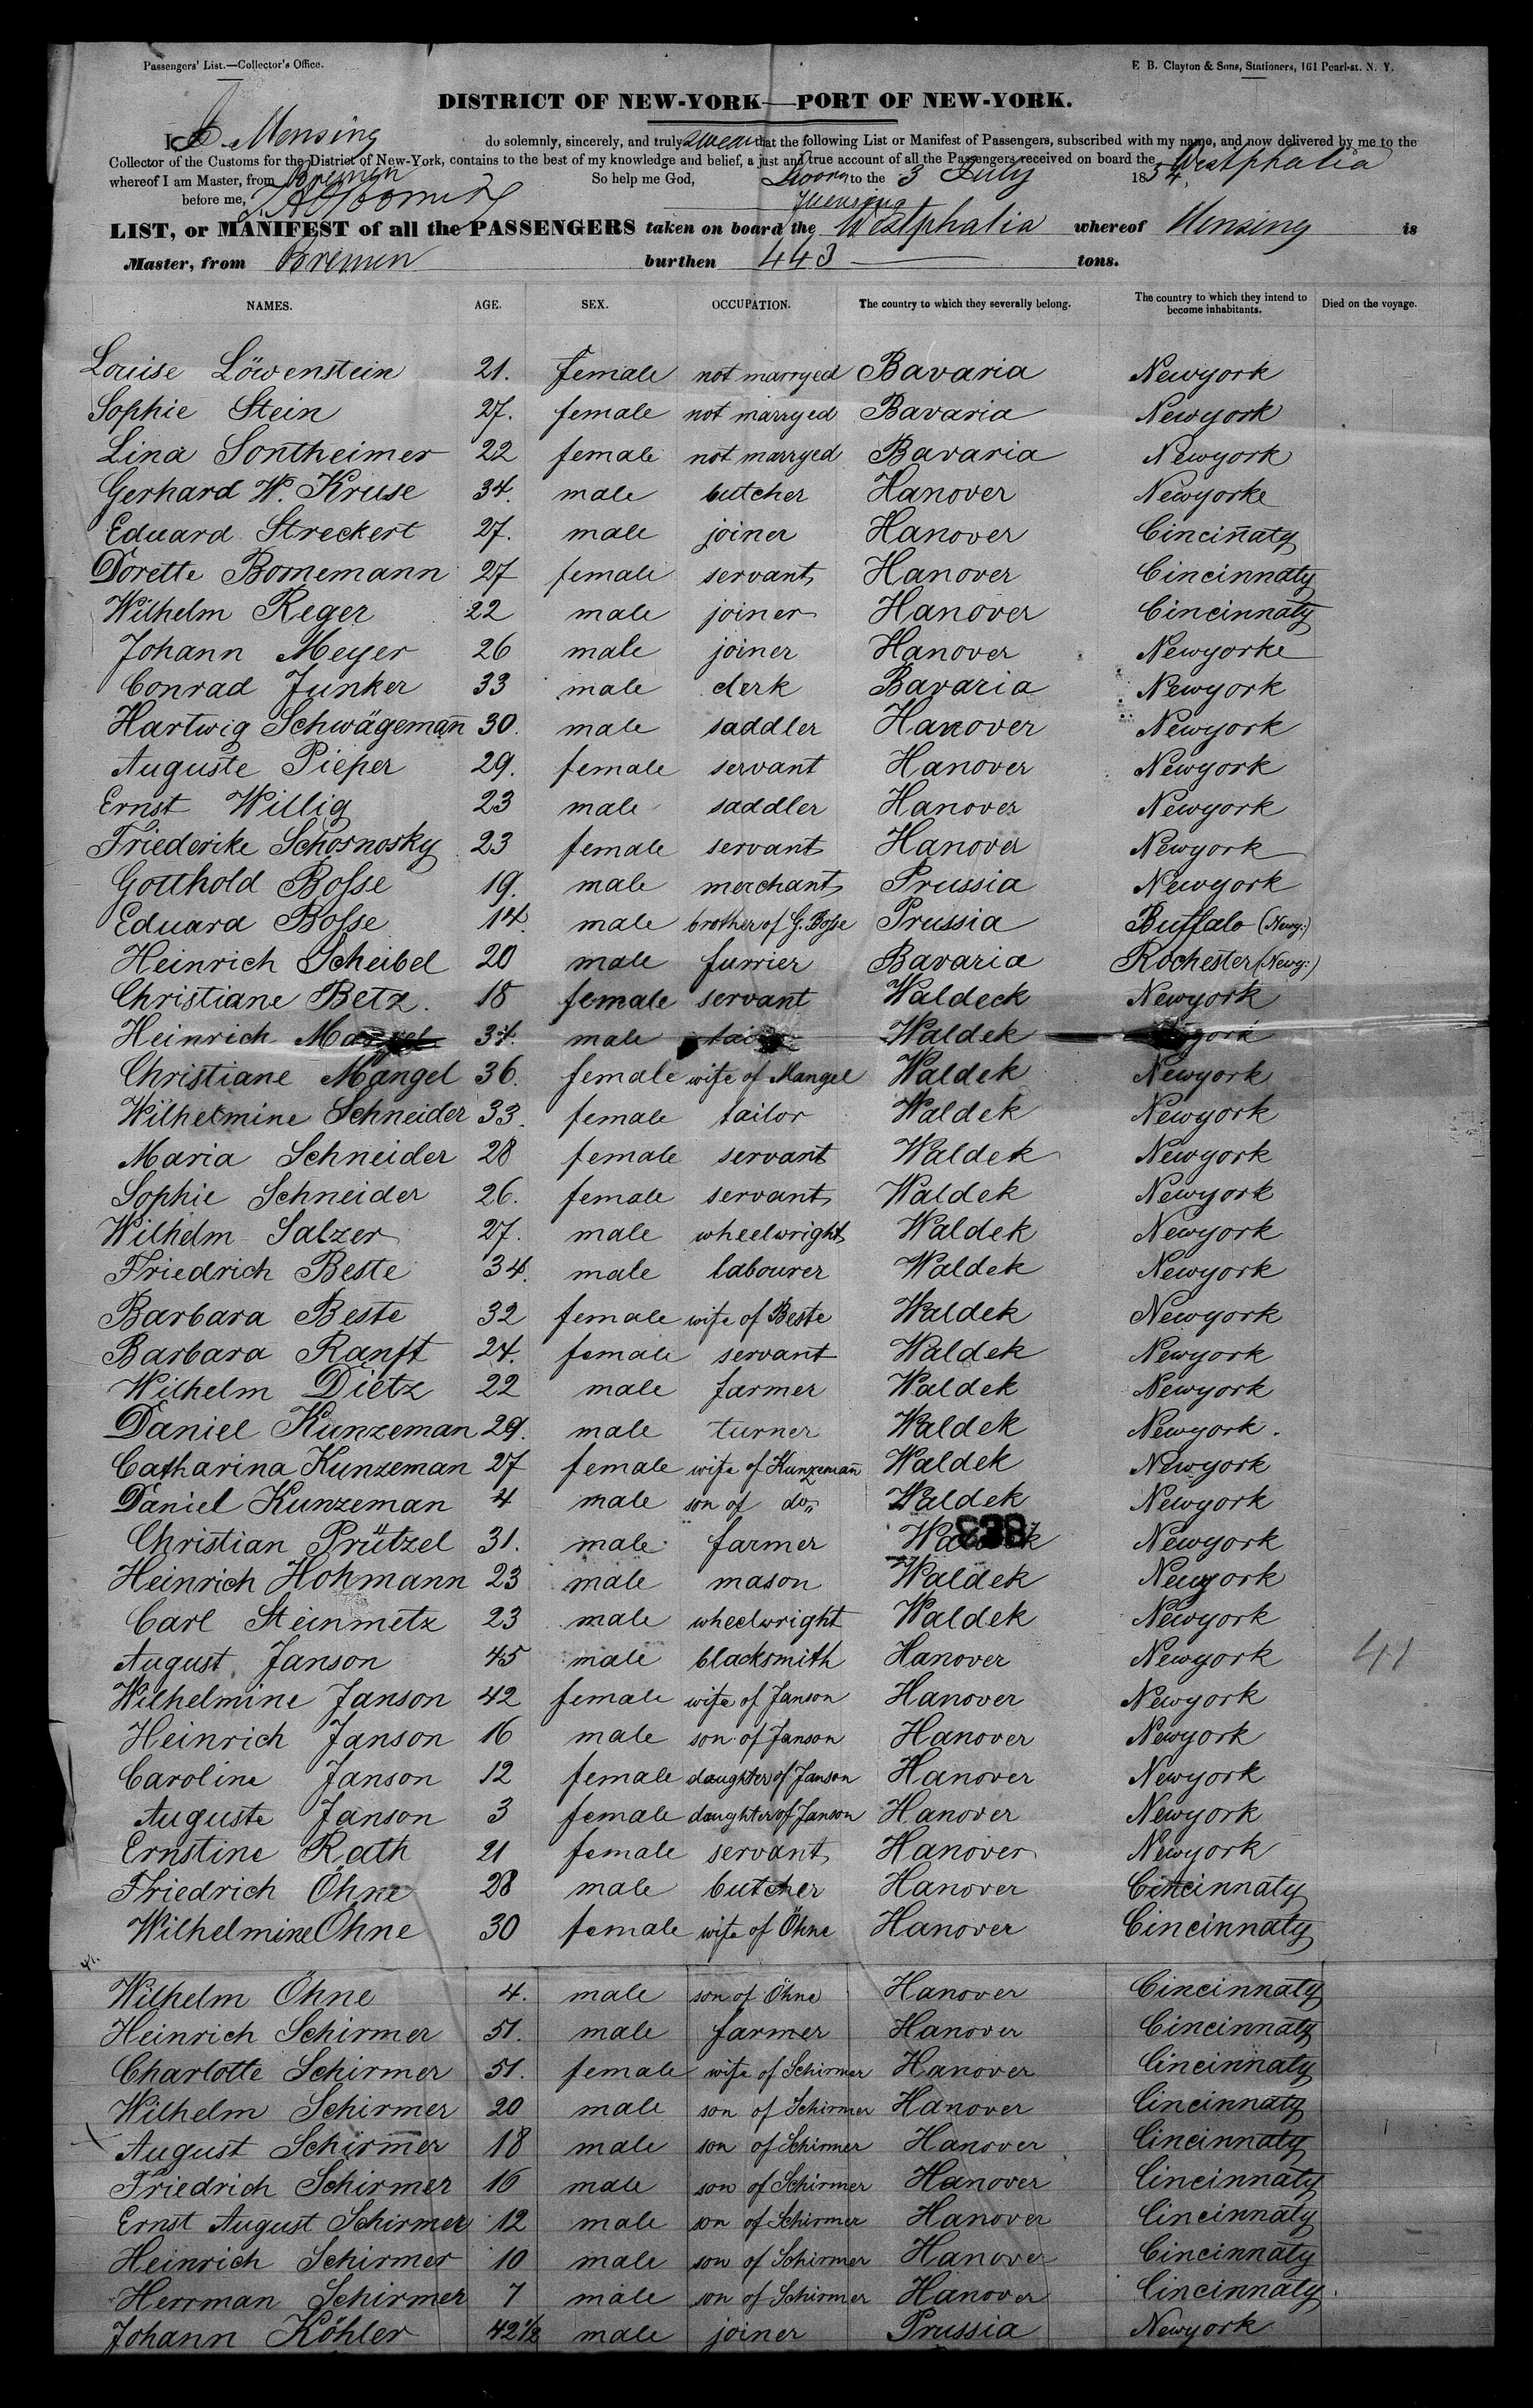 Passengers' List.—Collector's Office.
E. B. Clayton & Sons, Stationers, 161 Pearl-st. N. Y.
DISTRICT OF NEW-YORK—PORT OF NEW-YORK.
I, Mensing do solemnly, sincerely, and truly swear that the following List or Manifest of Passengers, subscribed with my name, and now delivered by me to the
Collector of the Customs for the District of New-York, contains to the best of my knowledge and belief, a just and true account of all the Passengers received on board the Westphalia
whereof I am Master, from Bremen So help me God, Sworn to the 3 July 1854
before me, Mensing
LIST, or MANIFEST of all the PASSENGERS taken on board the Westphalia whereof Mensing is
Master, from Bremen burthen 443 tons.
NAMES. AGE. SEX. OCCUPATION. The country to which they severally belong. The country to which they intend to become inhabitants. Died on the voyage.
Louise Löwenstein 21. female not marryed Bavaria Newyork
Sophie Stein 27. female not marryed Bavaria Newyork
Lina Sontheimer 22 female not marryed Bavaria Newyork
Gerhard W. Kruse 34. male butcher Hanover Newyorke
Eduard Streckert 27. male joiner Hanover Cincin̄aty
Dorette Bornemann 27 female servant Hanover Cincinnaty
Wilhelm Reger 22 male joiner Hanover Cincinnaty
Johann Meyer 26 male joiner Hanover Newyorke
Conrad Junker 33 male clerk Bavaria Newyork
Hartwig Schwägeman̄ 30. male saddler Hanover Newyork
Auguste Pieper 29. female servant Hanover Newyork
Ernst Willig 23 male saddler Hanover Newyork
Friederike Schosnosky 23 female servant Hanover Newyork
Gotthold Bosse 19. male merchant Prussia Newyork
Eduard Bosse 14. male brother of G. Bosse Prussia Buffalo (Newy:)
Heinrich Scheibel 20 male furrier Bavaria Rochester (Newy:)
Christiane Betz. 18 female servant Waldeck Newyork
Heinrich 34. male Waldek
Christiane Mangel 36. female wife of Mangel Waldek Newyork
Wilhelmine Schneider 33. female tailor Waldek Newyork
Maria Schneider 28 female servant Waldek Newyork
Sophie Schneider 26. female servant Waldek Newyork
Wilhelm Salzer 27. male wheelwright Waldek Newyork
Friedrich Beste 34. male labourer Waldek Newyork
Barbara Beste 32 female wife of Beste Waldek Newyork
Barbara Ranft 24. female servant Waldek Newyork
Wilhelm Dietz 22 male farmer Waldek Newyork
Daniel Kunzeman 29. male turner Waldek Newyork.
Catharina Kunzeman 27 female wife of Kunzeman̄ Waldek Newyork
Daniel Kunzeman 4 male son of do" Waldek Newyork
Christian Prützel 31. male farmer Waldek Newyork
Heinrich Hohmann 23 male mason Waldek Newyork
Carl Steinmetz 23 male wheelwright Waldek Newyork
August Janson 45 male blacksmith Hanover Newyork 41
Wilhelmine Janson 42 female wife of Janson Hanover Newyork
Heinrich Janson 16 male son of Janson Hanover Newyork
Caroline Janson 12 female daughter of Janson Hanover Newyork
Auguste Janson 3 female daughter of Janson Hanover Newyork
Ernstine Rath 21 female servant Hanover Newyork
Friedrich Öhne 28 male butcher Hanover Cincinnaty
Wilhelmine Öhne 30 female wife of Öhne Hanover Cincinnaty
Wilhelm Öhne 4. male son of Öhne Hanover Cincinnaty
Heinrich Schirmer 51. male farmer Hanover Cincinnaty
Charlotte Schirmer 51. female wife of Schirmer Hanover Cincinnaty
Wilhelm Schirmer 20 male son of Schirmer Hanover Cincinnaty
August Schirmer 18 male son of Schirmer Hanover Cincinnaty
Friedrich Schirmer 16 male son of Schirmer Hanover Cincinnaty
Ernst August Schirmer 12 male son of Schirmer Hanover Cincinnaty
Heinrich Schirmer 10 male son of Schirmer Hanover Cincinnaty
Herrman Schirmer 7 male son of Schirmer Hanover Cincinnaty
Johann Köhler 42½ male joiner Prussia Newyork